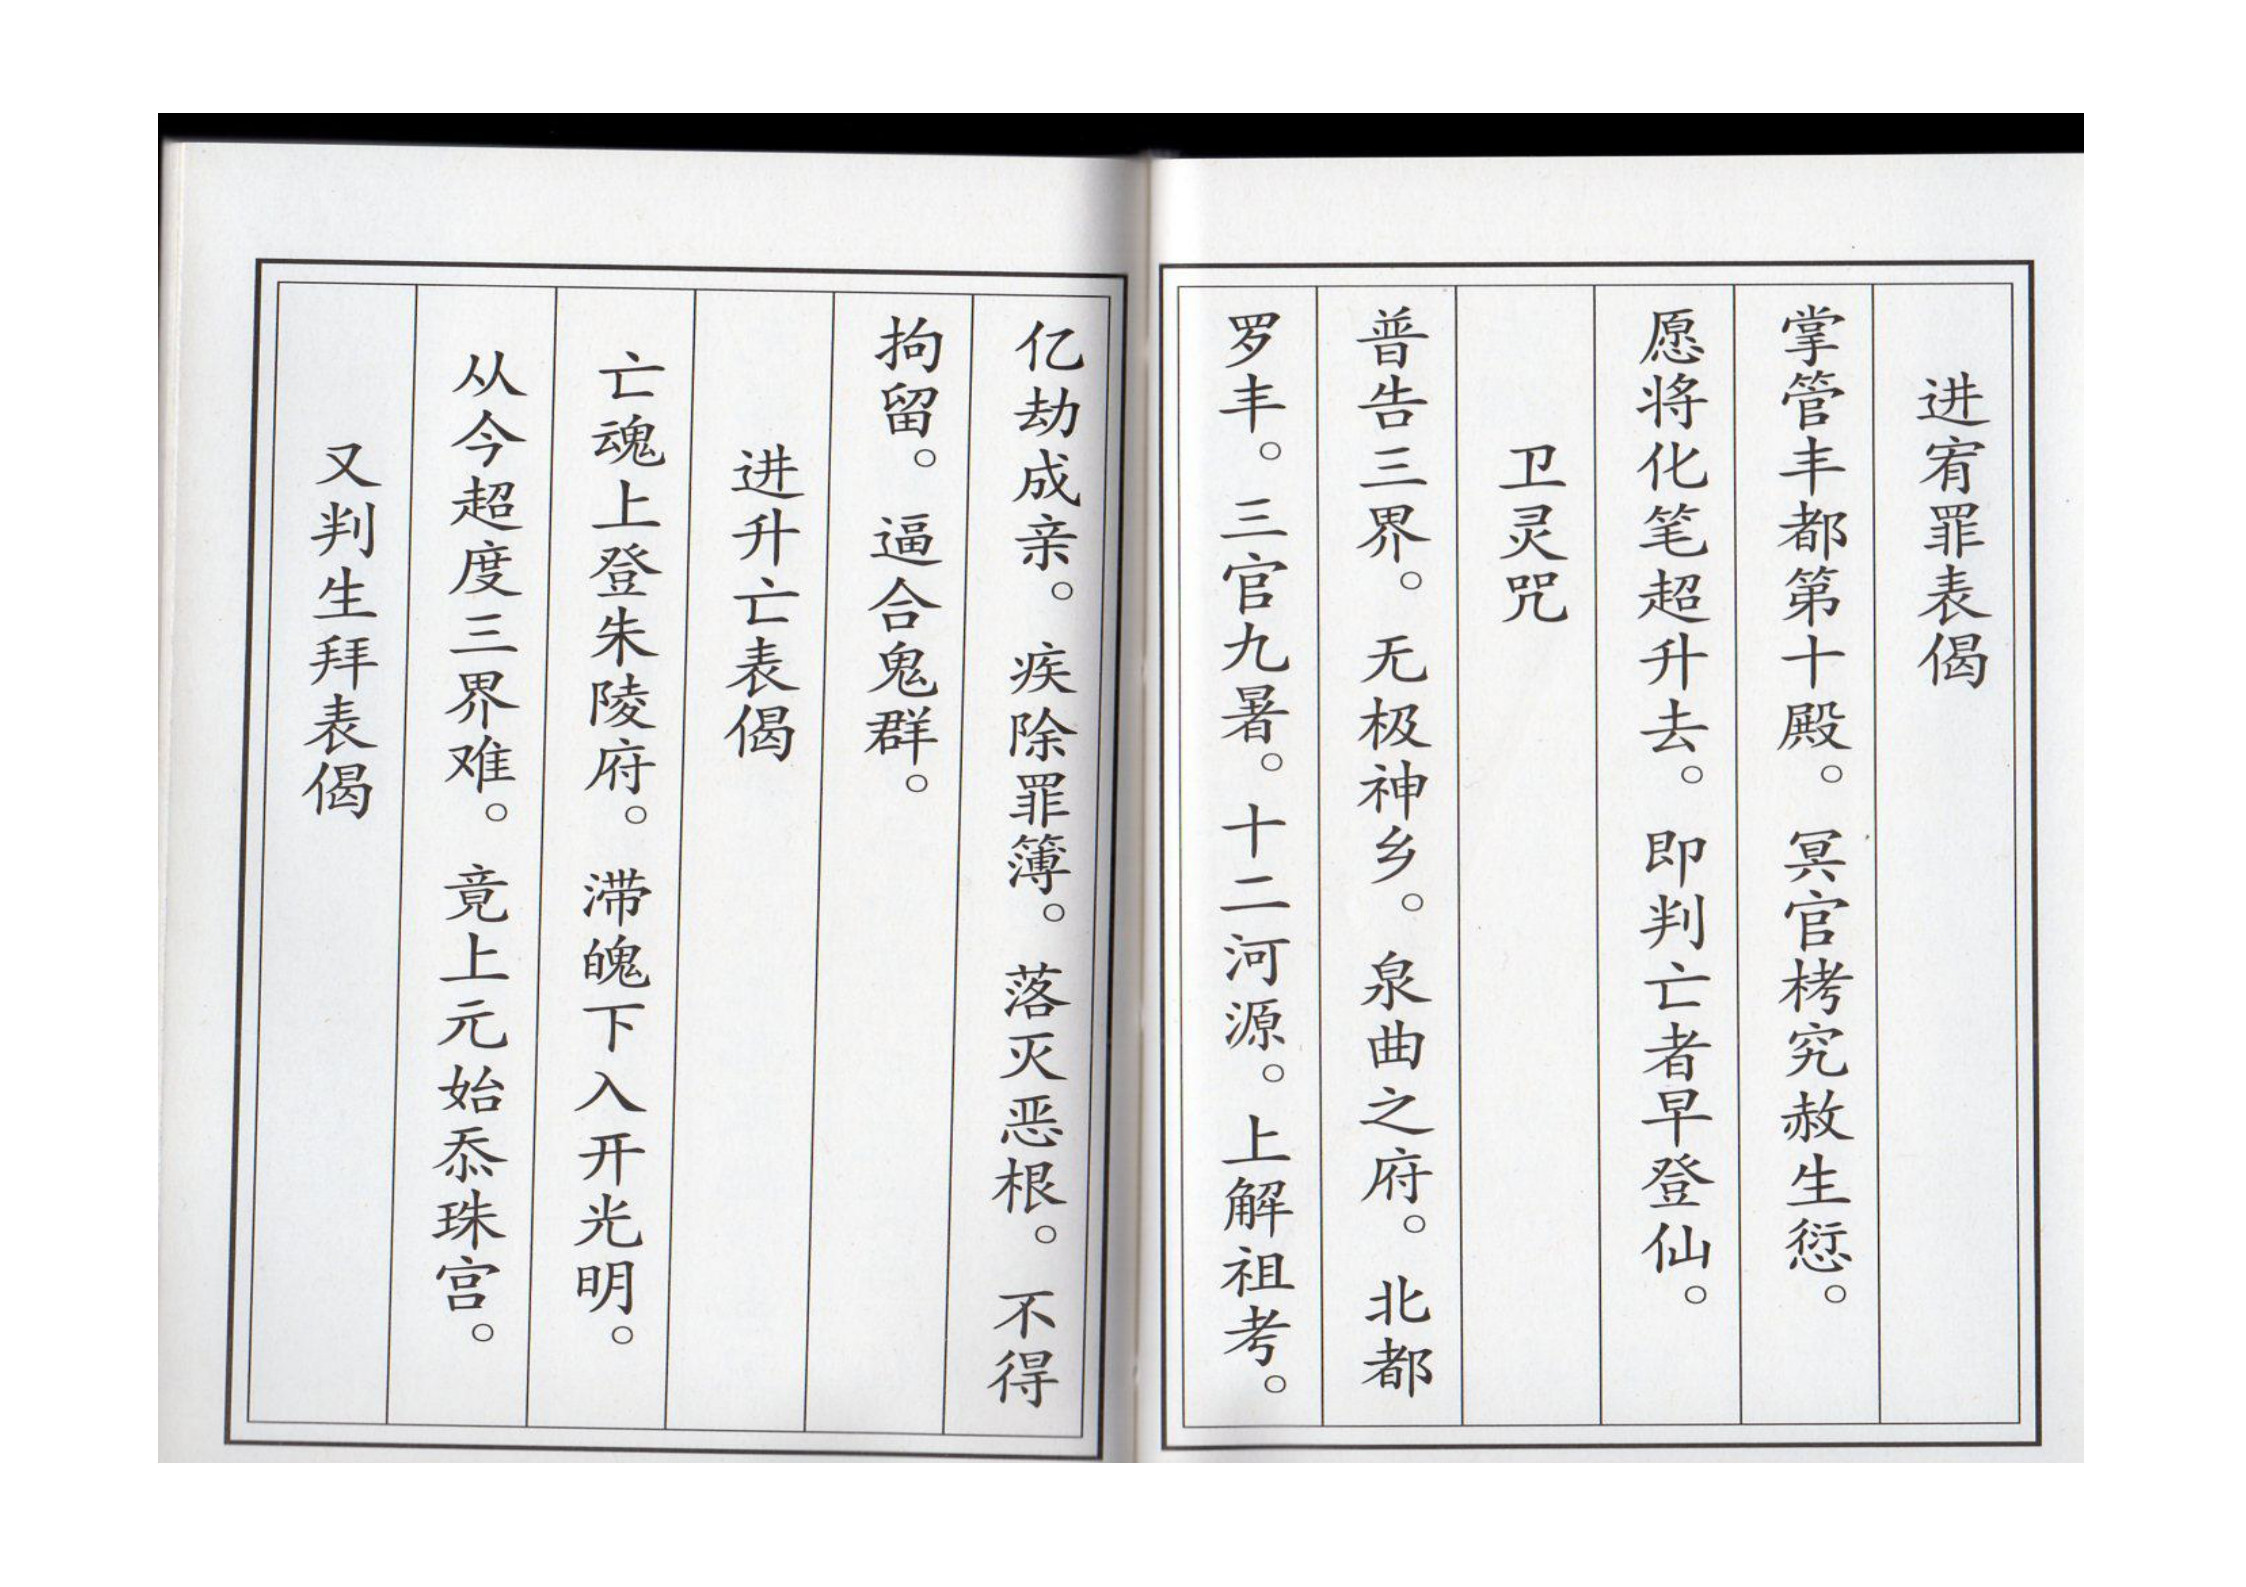 进宥罪表偈
掌管丰都第十殿。冥官栲究赦生愆。
愿将化笔超升去。即判亡者早登仙。
卫灵咒
普告三界。无极神乡。泉曲之府。北都
罗丰。三官九暑。十二河源。上解祖考。
亿劫成亲。疾除罪簿。落灭恶根。不得
拘留。逼合鬼群。
进升亡表偈
亡魂上登朱陵府。滞魄下入开光明。
从今超度三界难。竟上元始忝珠宫。
又判生拜表偈